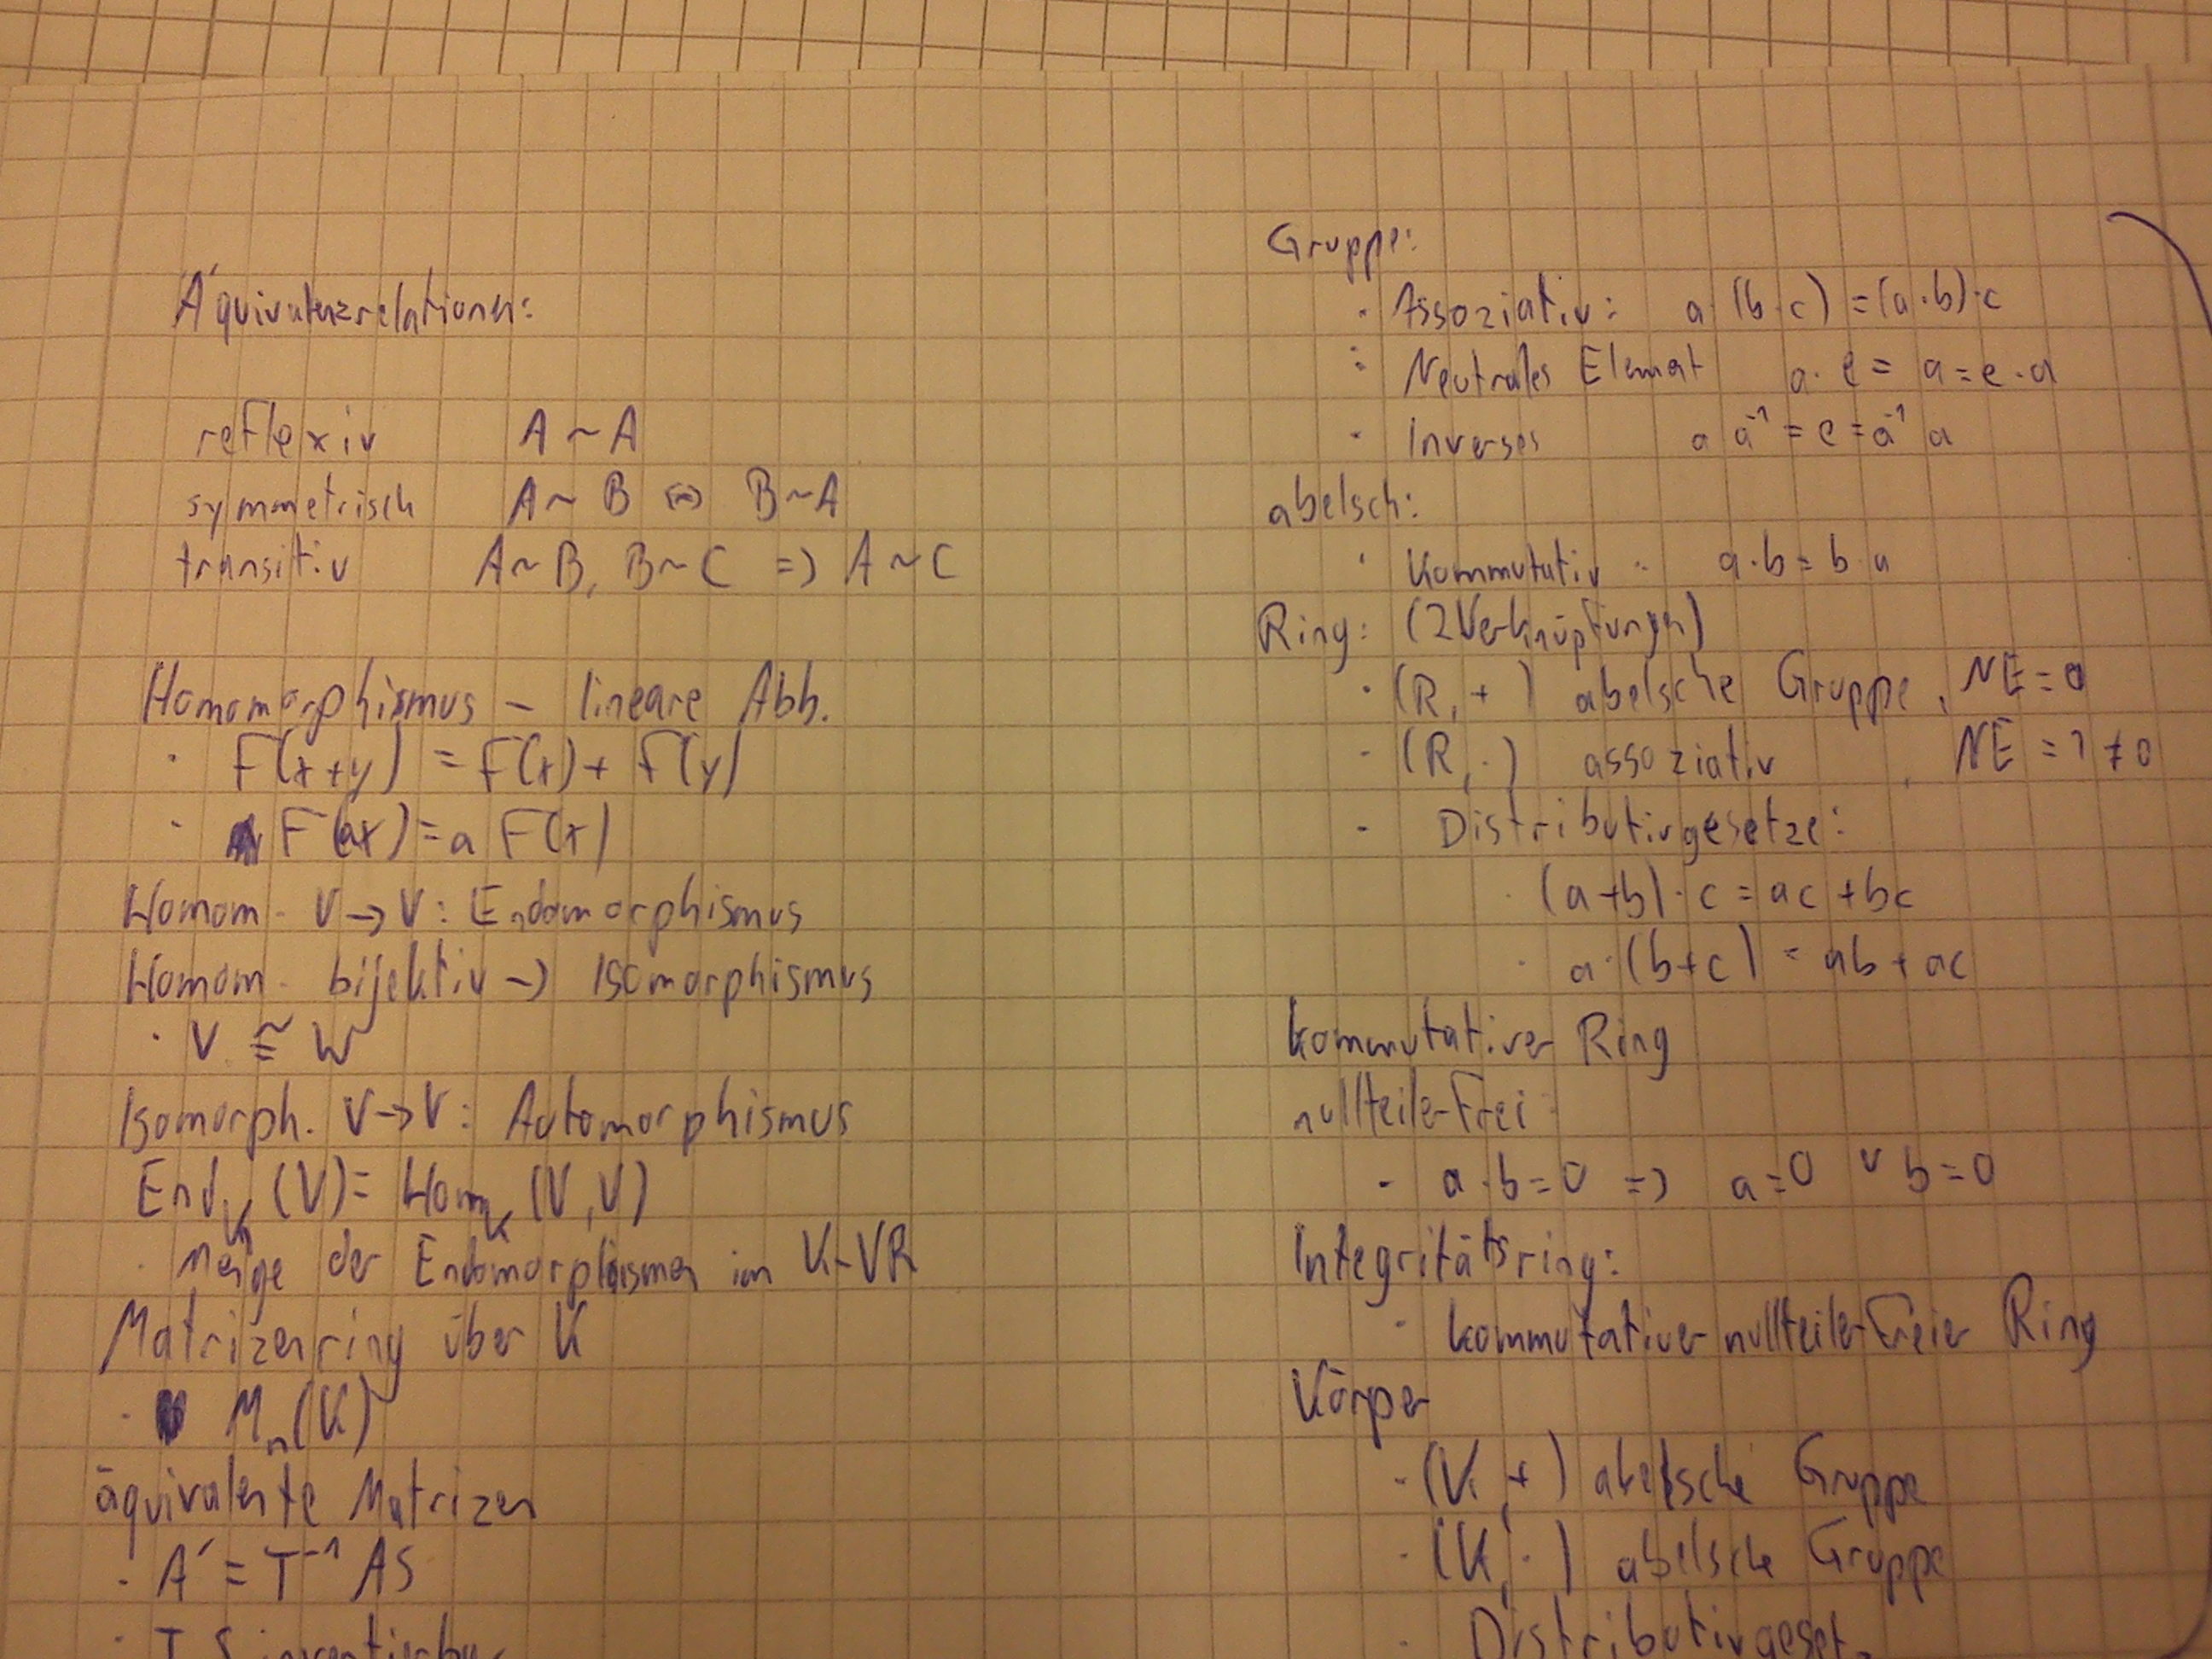 Äquivalenzrelationen:
reflexiv A ~ A
symmetrisch A ~ B ⇔ B ~ A
transitiv A ~ B, B ~ C => A ~ C
Homomorphismus - lineare Abb.
· F(x+y) = F(x) + F(y)
· F(ax) = a F(x)
Homom. V → V: Endomorphismus
Homom. bijektiv → Isomorphismus
· V ≅ W
Isomorph. V → V: Automorphismus
End_K (V) = Hom_K (V,V)
· Menge der Endomorphismen im K-VR
Matrizenring über K
· M_n(K)
äquivalente Matrizen
· A' = T⁻¹ AS
· T, S invertierbar
Gruppe:
· Assoziativ: a·(b·c) = (a·b)·c
· Neutrales Element a·e = a = e·a
· Inverses a a⁻¹ = e = a⁻¹ a
abelsch:
· Kommutativ: a·b = b·a
Ring: (2 Verknüpfungen)
· (R,+) abelsche Gruppe, NE = 0
· (R,·) assoziativ, NE = 1 ≠ 0
· Distributivgesetze:
· (a+b)·c = ac + bc
· a·(b+c) = ab + ac
kommutativer Ring
nullteilerfrei
- a·b = 0 => a = 0 ∨ b = 0
Integritätsring:
· kommutativer nullteilerfreier Ring
Körper
· (K,+) abelsche Gruppe
· (K,·) abelsche Gruppe
· Distributivgeset